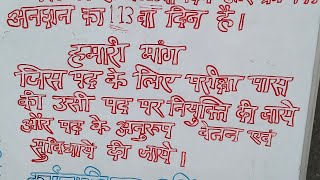 अनशन का 113 वां दिन है।
हमारी मांग
जिस पद के लिए परीक्षा पास
की उसी पद पर नियुक्ति की जाये
और पद के अनुरूप वेतन एवं
सुविधायें की जाये।